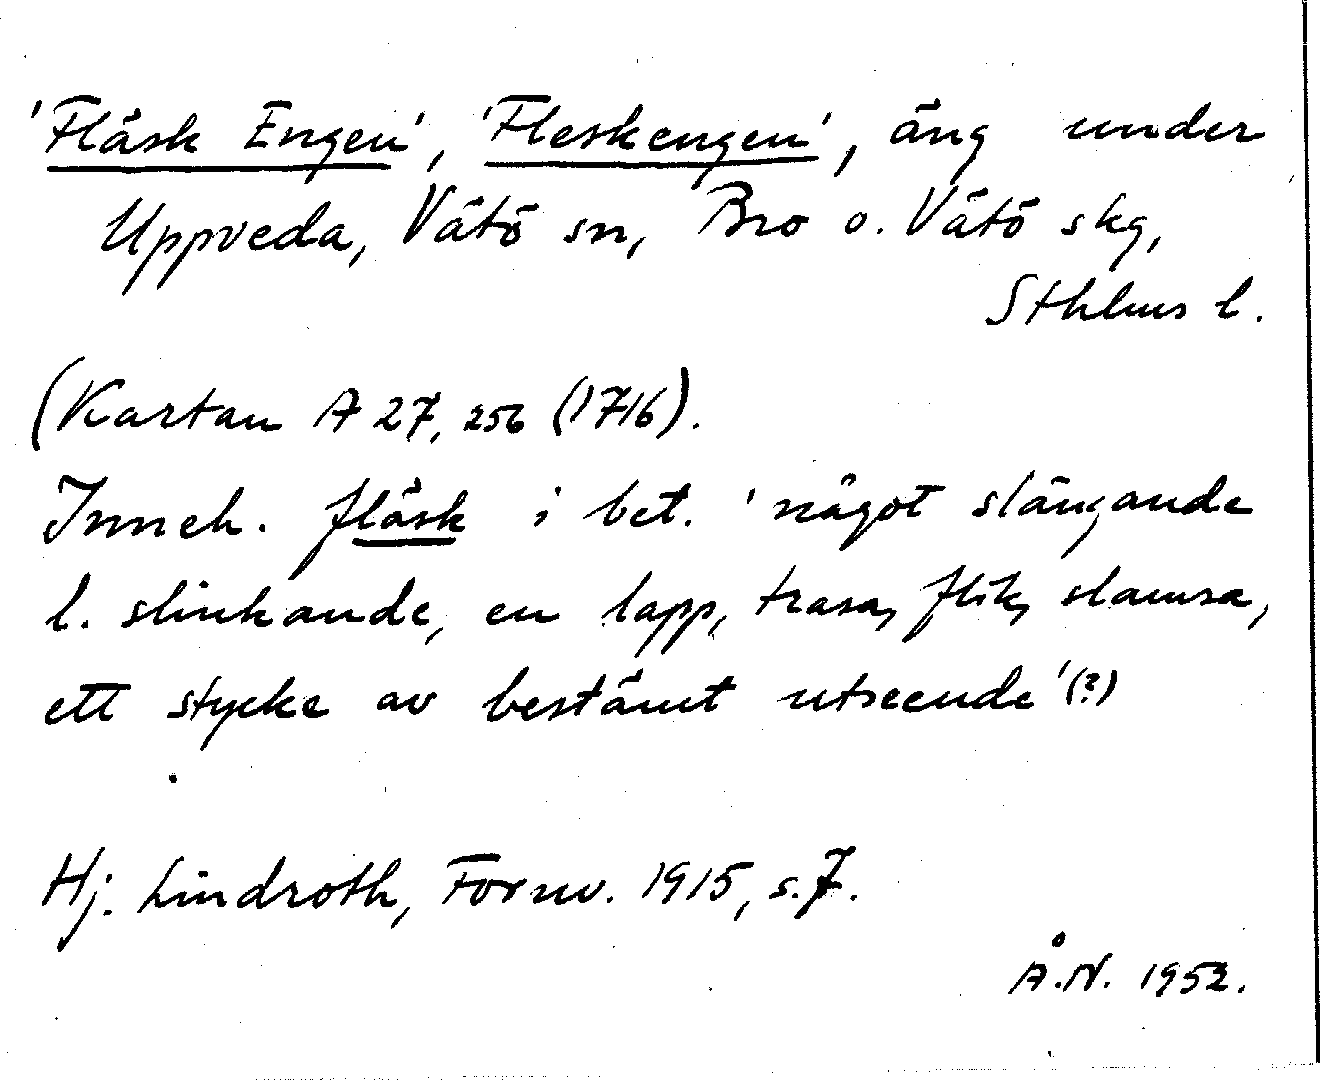 'Fläsk Engen', 'Fleskengen', äng under
Uppveda, Vätö sn, Bro o. Vätö skg,
Sthlms l.
(Kartan A 27, 256 (1716).
Inneh. fläsk i bet. 'något slängande
l. slinkande, en lapp, trasa, flik, slamsa,
ett stycke av bestämt utseende'(?)
Hj. Lindroth, Fornv. 1915, s. 7.
Å.N. 1952.